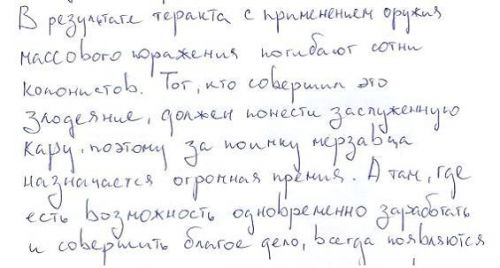 В результате теракта с применением оружия
массового поражения погибают сотни
колонистов. Тот, кто совершил это
злодеяние, должен понести заслуженную
кару, поэтому за поимку мерзавца
назначается огромная премия. А там, где
есть возможность одновременно заработать
и совершить благое дело, всегда появляются